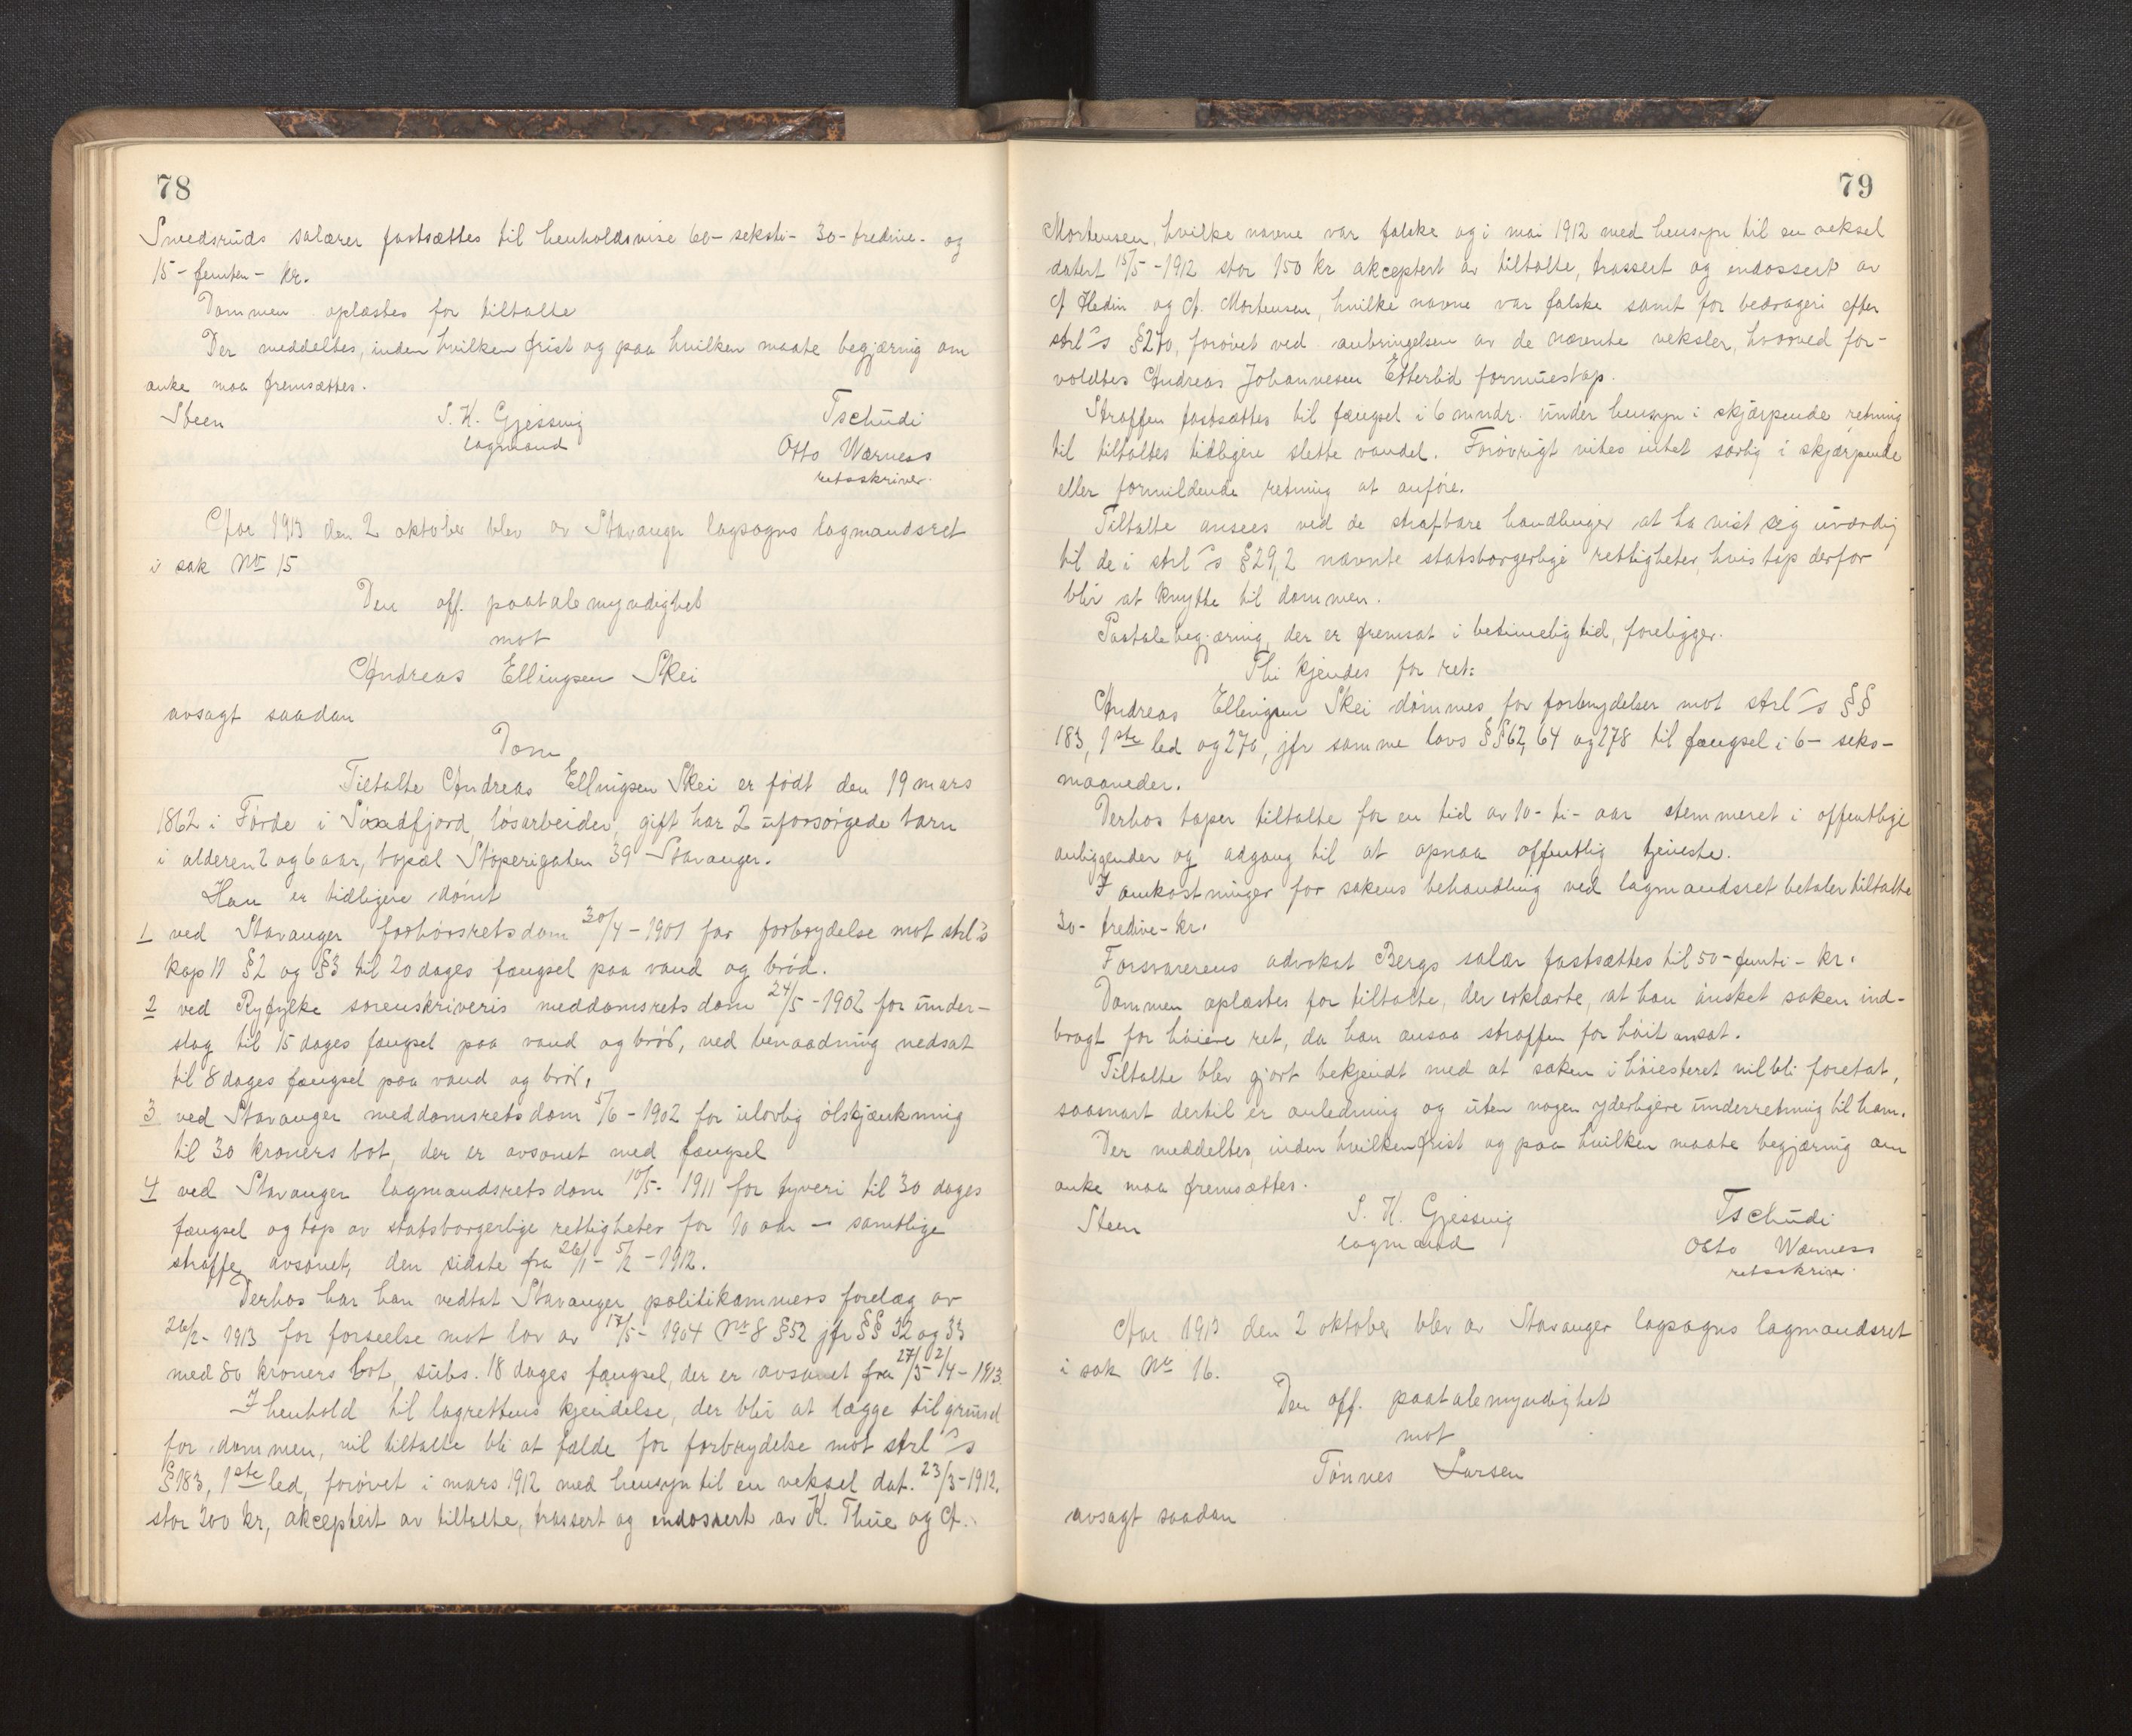 78
Smedsruds salærer fastsættes til henholdsvise 60- seksti- 30- tredive- og
15- femten- kr.
Dommen oplæstes for tiltalte
Der meddeltes, inden hvilken frist og paa hvilken maate begjæring om
anke maa fremsættes.
Steen S. K. Gjessing Tschudi
lagmand Otto Wærness
retsskriver.
Aar 1913 den 2 oktober blev av Stavanger lagsogns lagmandsret
i sak Nr 15
Den off. paatalemyndighet
mot
Andreas Ellingsen Skei
avsagt saadan
Dom
Tiltalte Andreas Ellingsen Skei er født den 19 mars
1862 i Førde i Søndfjord, løsarbeider, gift har 2 uforsørgede barn
i alderen 2 og 6 aar, bopæl Støperigaten 39 Stavanger.
Han er tidligere dømt
1 ved Stavanger forhørsretsdom 30/4-1901 for forbrydelse mot strl's
kap 19 §2 og §3 til 20 dages fængsel paa vand og brød.
2 ved Ryfylke sorenskriveris meddomsretsdom 24/5-1902 for under-
slag til 15 dages fængsel paa vand og brød, ved benaadning nedsat
til 8 dages fængsel paa vand og brød,
3 ved Stavanger meddomsretsdom 5/6-1902 for ulovlig ølskjænkning
til 30 kroners bot, der er avsonet med fængsel
4 ved Stavanger lagmandsretsdom 10/5-1911 for tyveri til 30 dages
fængsel og tap av statsborgerlige rettigheter for 10 aar - samtlige
straffe avsonet, den sidste fra 26/1-5/2-1912.
Derhos har han vedtat Stavanger politikammers forelæg av
26/2-1913 for forseelse mot lov av 17/5-1904 Nr 8 §52 jfr §§ 32 og 33
med 80 kroners bot, subs. 18 dages fængsel, der er avsonet fra 27/3-2/4-1913.
I henhold til lagrettens kjendelse, der blir at lægge til grund
for dommen, vil tiltalte bli at fælde for forbrydelse mot strl's
§183, 1ste led, forøvet i mars 1912 med hensyn til en veksel dat. 23/3-1912.
stor 200 kr, akceptert av tiltalte, trassert og endossert av K. Thue og A.
79
Mortensen, hvilke navne var falske og i mai 1912 med hensyn til en veksel
datert 15/5-1912 stor 150 kr akceptert av tiltalte, trassert og endossert av
A Hedin og A. Mortensen, hvilke navne var falske samt for bedrageri efter
strl's §270, forøvet ved anbringelsen av de nævnte veksler, hvorved for-
voldtes Andreas Johannesen Etterlid formuestap.
Straffen fastsættes til fængsel i 6 mndr. under hensyn i skjærpende retning
til tiltaltes tidligere slette vandel. Forøvrigt vites intet særlig i skjærpende
eller formildende retning at anføre.
Tiltalte ansees ved de strafbare handlinger at ha vist sig uværdig
til de i strl's §29,2 nævnte statsborgerlige rettigheter, hvis tap derfor
blir at knytte til dommen.
Paatalebegjæring, der er fremsat i betimelig tid, foreligger.
Thi kjendes for ret:
Andreas Ellingsen Skei dømmes for forbrydelser mot strl's §§
183, 1ste led og 270, jfr samme lovs §§62, 64 og 278 til fængsel i 6- seks-
maaneder.
Derhos taper tiltalte for en tid av 10- ti- aar stemmeret i offentlige
anliggender og adgang til at opnaa offentlig tjeneste.
I omkostninger for sakens behandling ved lagmandsret betaler tiltalte
30- tredive- kr.
Forsvarerens advokat Bergs salær fastsættes til 50- femti- kr.
Dommen oplæstes for tiltalte, der erklærte, at han ønsket saken ind-
bragt for høiere ret, da han ansaa straffen for høit ansat.
Tiltalte blev gjort bekjendt med at saken i høiesteret vil bli foretat,
saasnart dertil er anledning og uten nogen yderligere underretning til ham.
Der meddeltes, inden hvilken frist og paa hvilken maate begjæring om
anke maa fremsættes.
Steen S. K. Gjessing Tschudi
lagmand Otto Wærness
retsskriver.
Aar 1913 den 2 oktober blev av Stavanger lagsogns lagmandsret
i sak Nr 16.
Den off. paatalemyndighet
mot
Tønnes Larsen
avsagt saadan